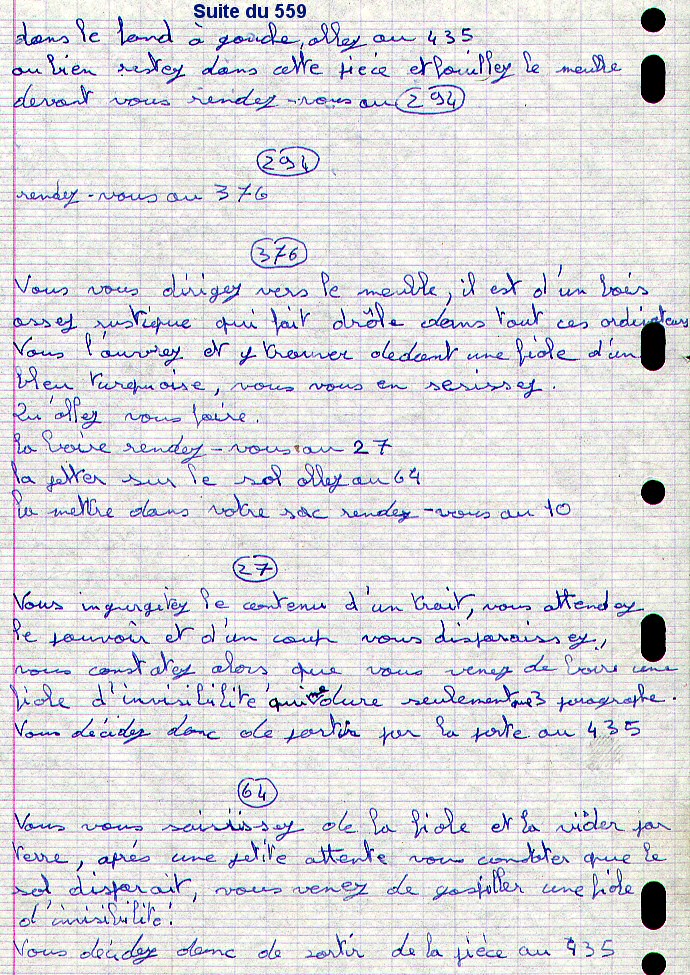 Suite du 559
dans le fond à gauche, allez au 435
ou bien restez dans cette pièce et fouillez le meuble
devant vous rendez-vous au 294
294
rendez-vous au 376
376
Vous vous dirigez vers le meuble, il est d'un bois
assez rustique qui fait drôle dans tout ces ordinateurs
Vous l'ouvrez et y trouver dedant une fiole d'un
bleu turquoise, vous vous en sesissez.
Qu'allez vous faire.
la boire rendez-vous au 27
la jetter sur le sol allez au 64
la mettre dans votre sac rendez-vous au 10
27
Vous ingurgitez le contenu d'un trait, vous attendez
le pouvoir et d'un coup vous disparaissez,
vous constatez alors que vous venez de boire une
fiole d'invisibilité qui ne dure seulement que 3 paragraphe.
Vous décidez donc de sortir par la porte au 435
64
Vous vous saisissez de la fiole et la vider par
terre, après une petite attente vous constater que le
sol disparait, vous venez de gaspiller une fiole
d'invisibilité!
Vous décidez donc de sortir de la pièce au 435